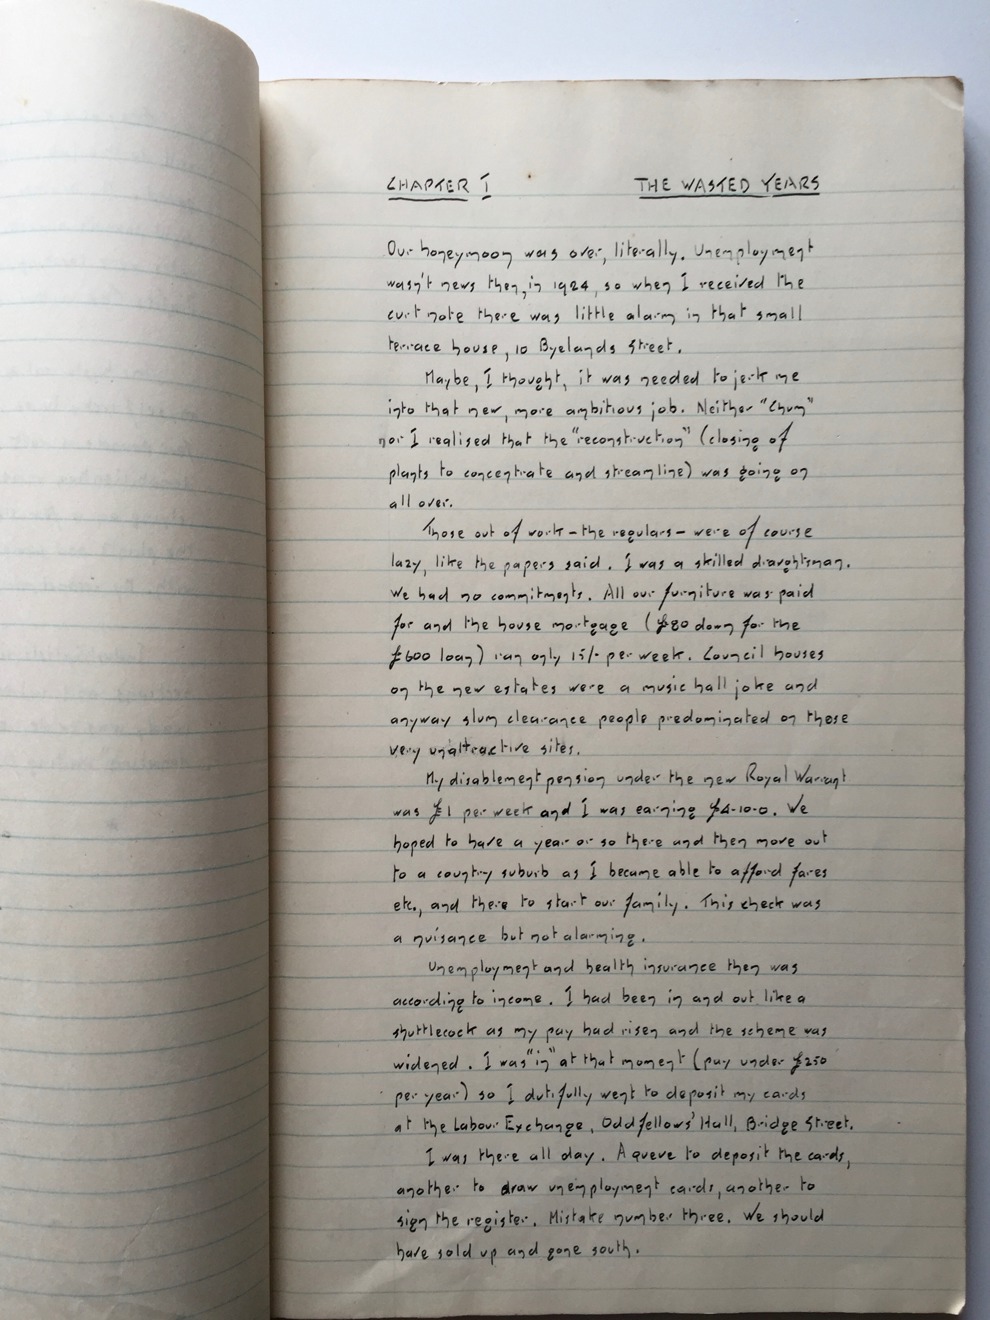 CHAPTER I THE WASTED YEARS
Our honeymoon was over, literally. Unemployment
wasn't news then, in 1924, so when I received the
curt note there was little alarm in that small
terrace house, 10 Byelands Street.
Maybe, I thought, it was needed to jerk me
into that new, more ambitious job. Neither "Chum"
nor I realised that the "reconstruction" (closing of
plants to concentrate and streamline) was going on
all over.
Those out of work - the regulars - were of course
lazy, like the papers said. I was a skilled draughtsman.
We had no commitments. All our furniture was paid
for and the house mortgage (£80 down for the
£600 loan) ran only 15/- per week. Council houses
on the new estates were a music hall joke and
anyway slum clearance people predominated on those
very unattractive sites.
My disablement pension under the new Royal Warrant
was £1 per week and I was earning £4-10-0. We
hoped to have a year or so there and then move out
to a country suburb as I became able to afford fares
etc., and there to start our family. This check was
a nuisance but not alarming.
Unemployment and health insurance then was
according to income. I had been in and out like a
shuttlecock as my pay had risen and the scheme was
widened. I was "in" at that moment (pay under £250
per year) so I dutifully went to deposit my cards
at the Labour Exchange, Oddfellows' Hall, Bridge Street.
I was there all day. A queue to deposit the cards,
another to draw unemployment cards, another to
sign the register. Mistake number three. We should
have sold up and gone south.